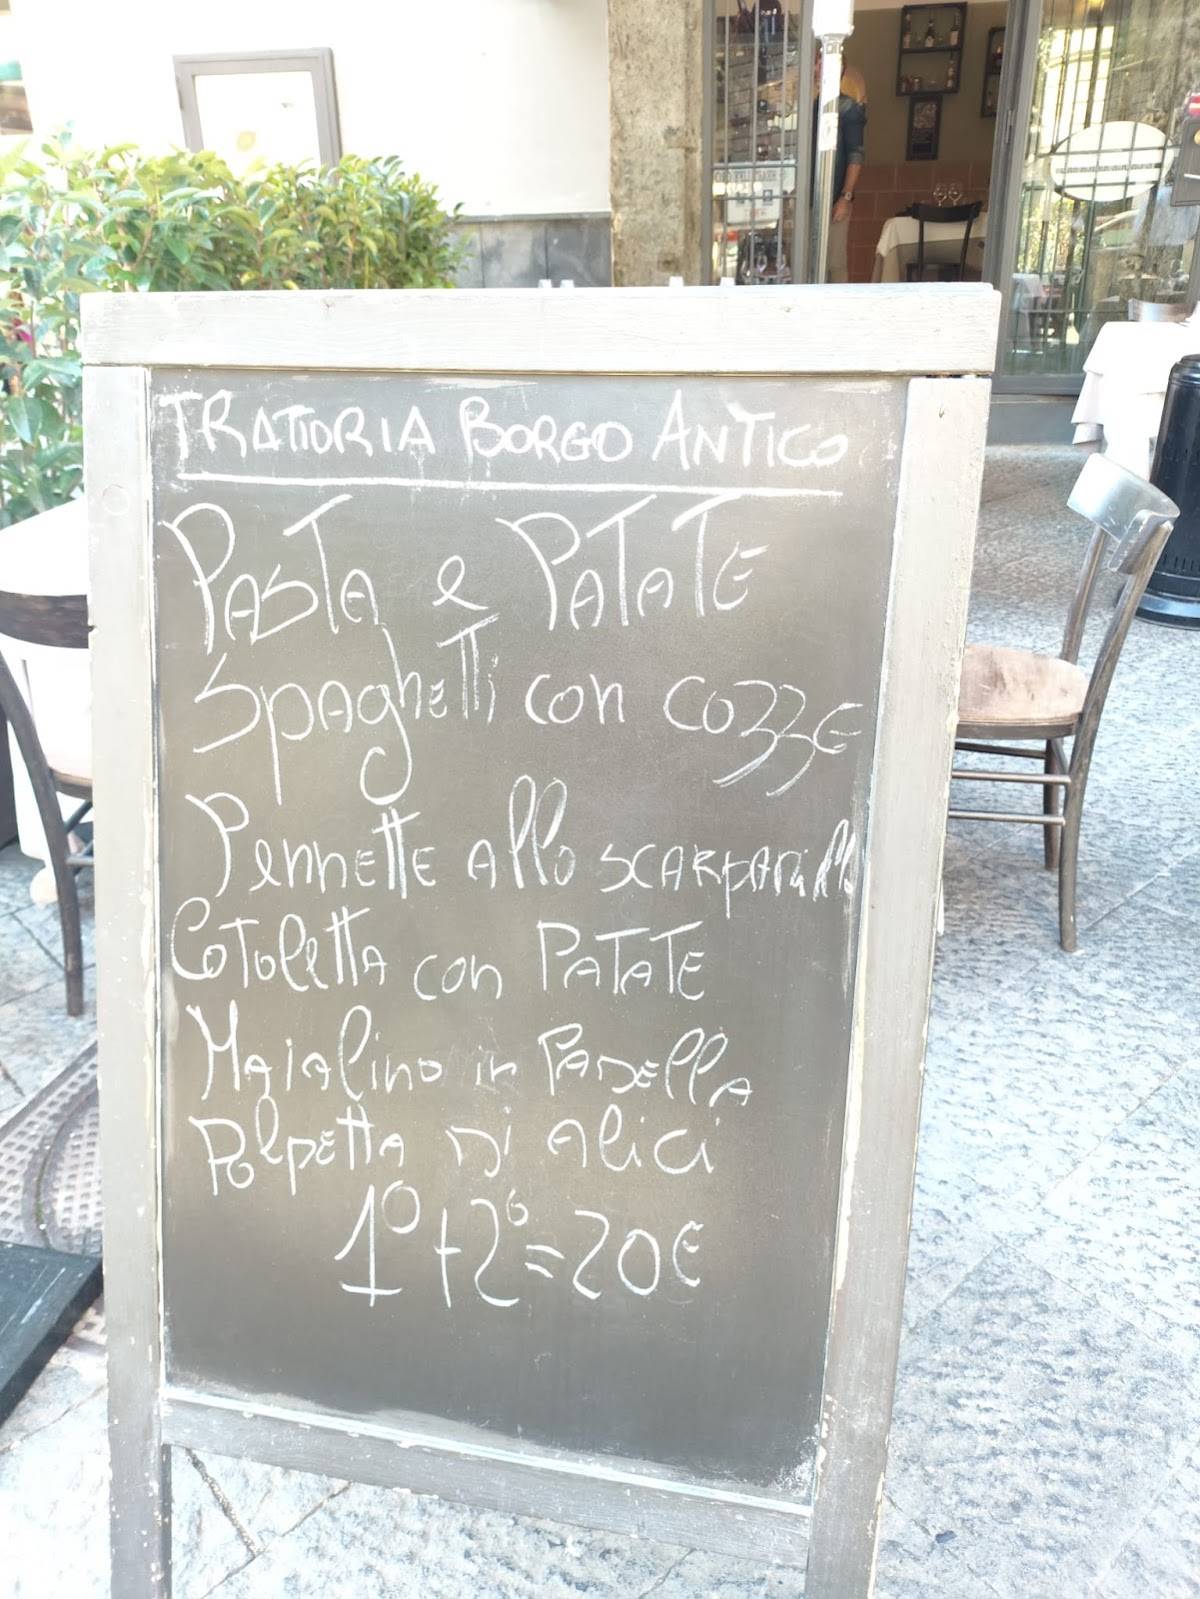 TRATTORIA BORGO ANTICO
PASTA e PATATE
Spaghetti con cozze
Pennette allo scarpariello
Cotoletta con PATATE
Maialino in Padella
Polpetta di alici
1°+2°=20€